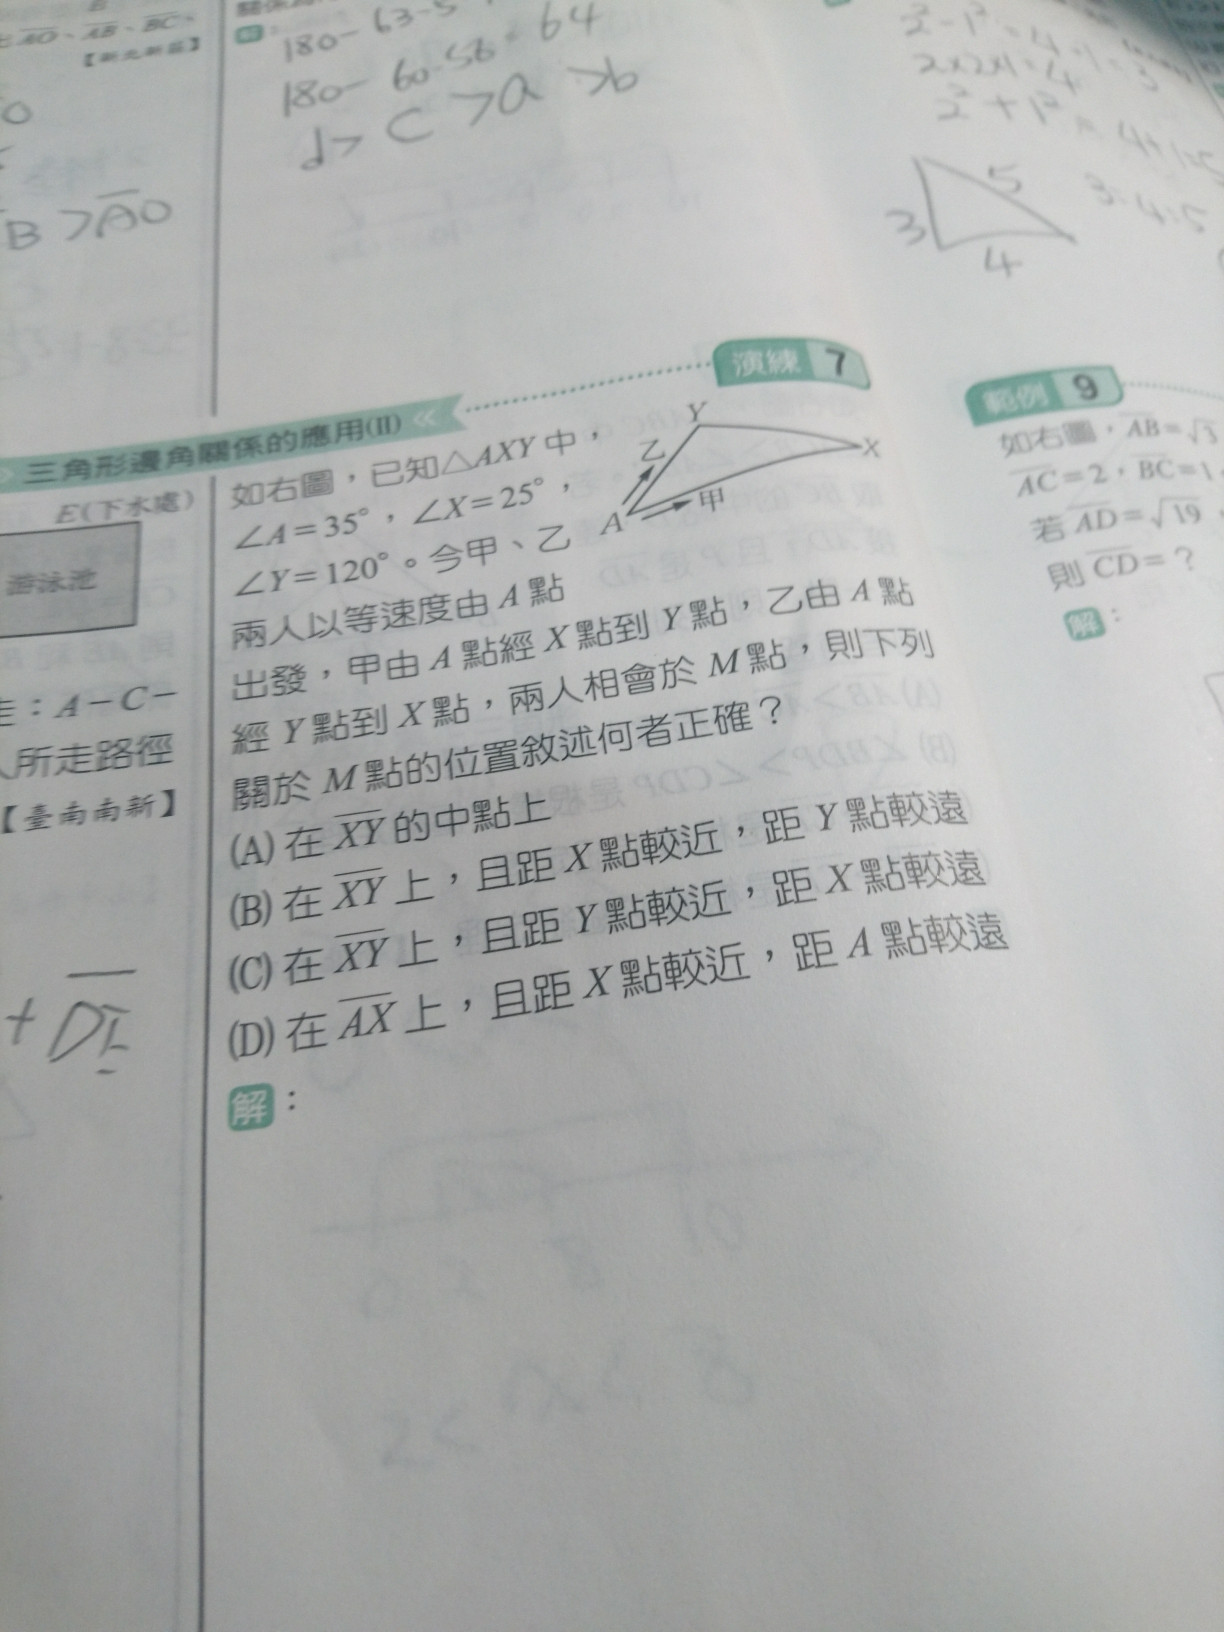 AO、AB、BC、
【新北新莊】
B > AO
180-63-5
180-60-56=64
d > C > a > b
2²-1²=4-1=3
2×2×1=4
2²+1²=4+1=5
3
5
4
3:4:5
三角形邊角關係的應用(II)
E(下水處)
游泳池
走：A－C－
人所走路徑
【臺南南新】
+ DE
演練 7
如右圖，已知△AXY中，
∠A=35°，∠X=25°，
∠Y=120°。今甲、乙
兩人以等速度由A點
出發，甲由A點經X點到Y點，乙由A點
經Y點到X點，兩人相會於M點，則下列
關於M點的位置敘述何者正確？
(A)在XY的中點上
(B)在XY上，且距X點較近，距Y點較遠
(C)在XY上，且距Y點較近，距X點較遠
(D)在AX上，且距X點較近，距A點較遠
解：
Y
乙
X
A
甲
範例 9
如右圖，AB=√3
AC=2，BC=1，
若AD=√19，
則CD=？
解：